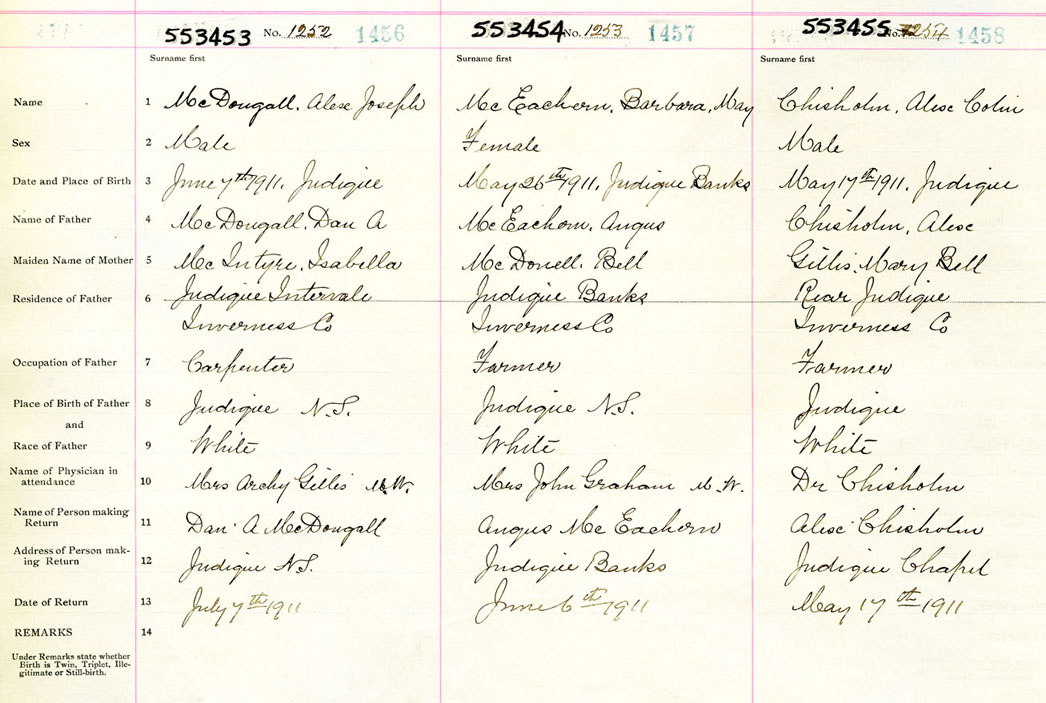 553453 No. 1252 1456 553454 No. 1253 1457 553455 No. 1254 1458
Surname first Surname first Surname first
Name 1 McDougall, Alex Joseph McEachern, Barbara, May Chisholm, Alex Colin
Sex 2 Male Female Male
Date and Place of Birth 3 June 7th 1911. Judique May 26th 1911, Judique Banks May 17th 1911, Judique
Name of Father 4 McDougall, Dan A McEachern, Angus Chisholm, Alex
Maiden Name of Mother 5 McIntyre, Isabella McDonell, Bell Gillis, Mary Bell
Residence of Father 6 Judique Intervale Judique Banks Rear Judique
Inverness Co Inverness Co Inverness Co
Occupation of Father 7 Carpenter Farmer Farmer
Place of Birth of Father 8 Judique N.S. Judique N.S. Judique
and
Race of Father 9 White White White
Name of Physician in attendance 10 Mrs Archy Gillis M.W. Mrs John Graham M.W. Dr Chisholm
Name of Person making Return 11 Dan A McDougall Angus McEachern Alex Chisholm
Address of Person mak-
ing Return 12 Judique N.S. Judique Banks Judique Chapel
Date of Return 13 July 7th 1911 June 6th 1911 May 17th 1911
REMARKS 14
Under Remarks state whether
Birth is Twin, Triplet, Ille-
gitimate or Still-birth.